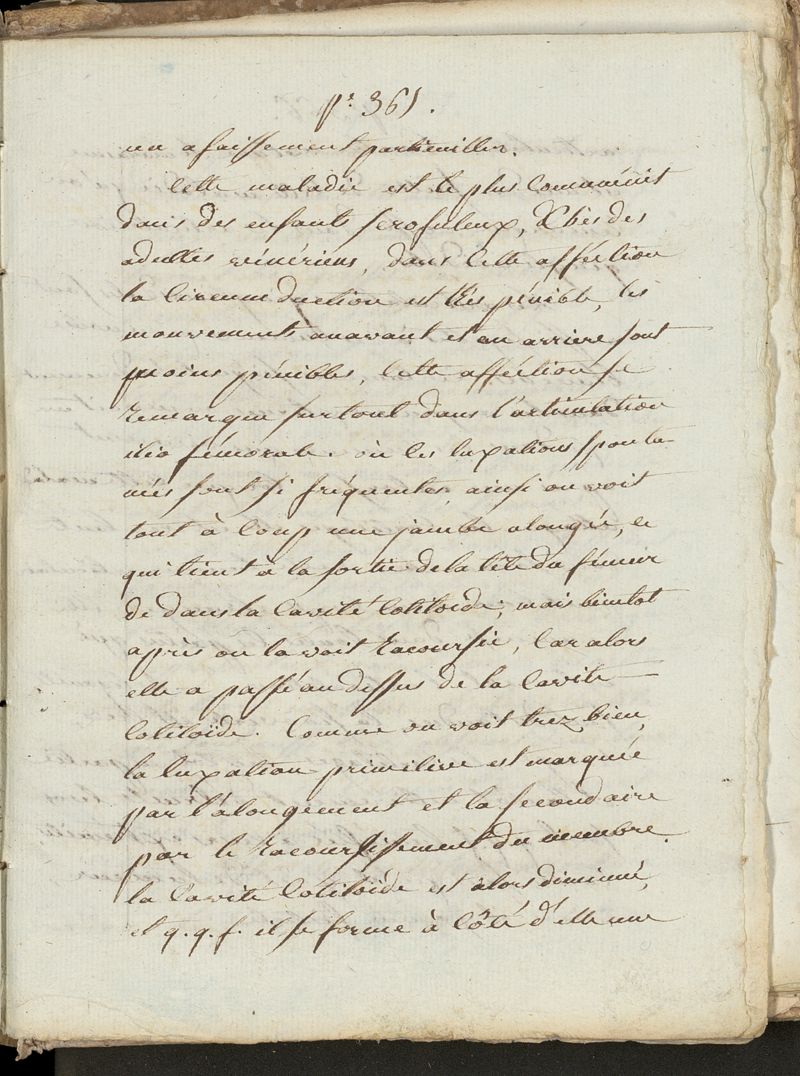 pe. 361.
un afaissement particuiller.
Cette maladie est le plus Communénit
dans des enfants scrofuleux, & chès des
adultes vénériens, dans Cette afféction
la Circumduction est tres pénible, les
mouvements anavant et an arriere sont
moins pénibles, Cette afféction se
remarque surtout dans l'articulation
ilio fémorale. où les luxations sponta-
nées sont si fréquentes, ainsi on voit
tout à Coup une jambe alongée, ce
qui tient à la sortie de la tête du fémur
de dans la Cavité Cotiloïde; mais bientot
après on la voit racoursie, Car alors
elle a passé au dessus de la Cavité
Cotiloïde. Comme on voit trez bien,
la luxation primitive est marquée
par l'alongement et la secondaire
par le racoursissement du membre.
la Cavité Cotiloïde est alors diminué,
et q.q.f. il se forme à Côté d'elle une